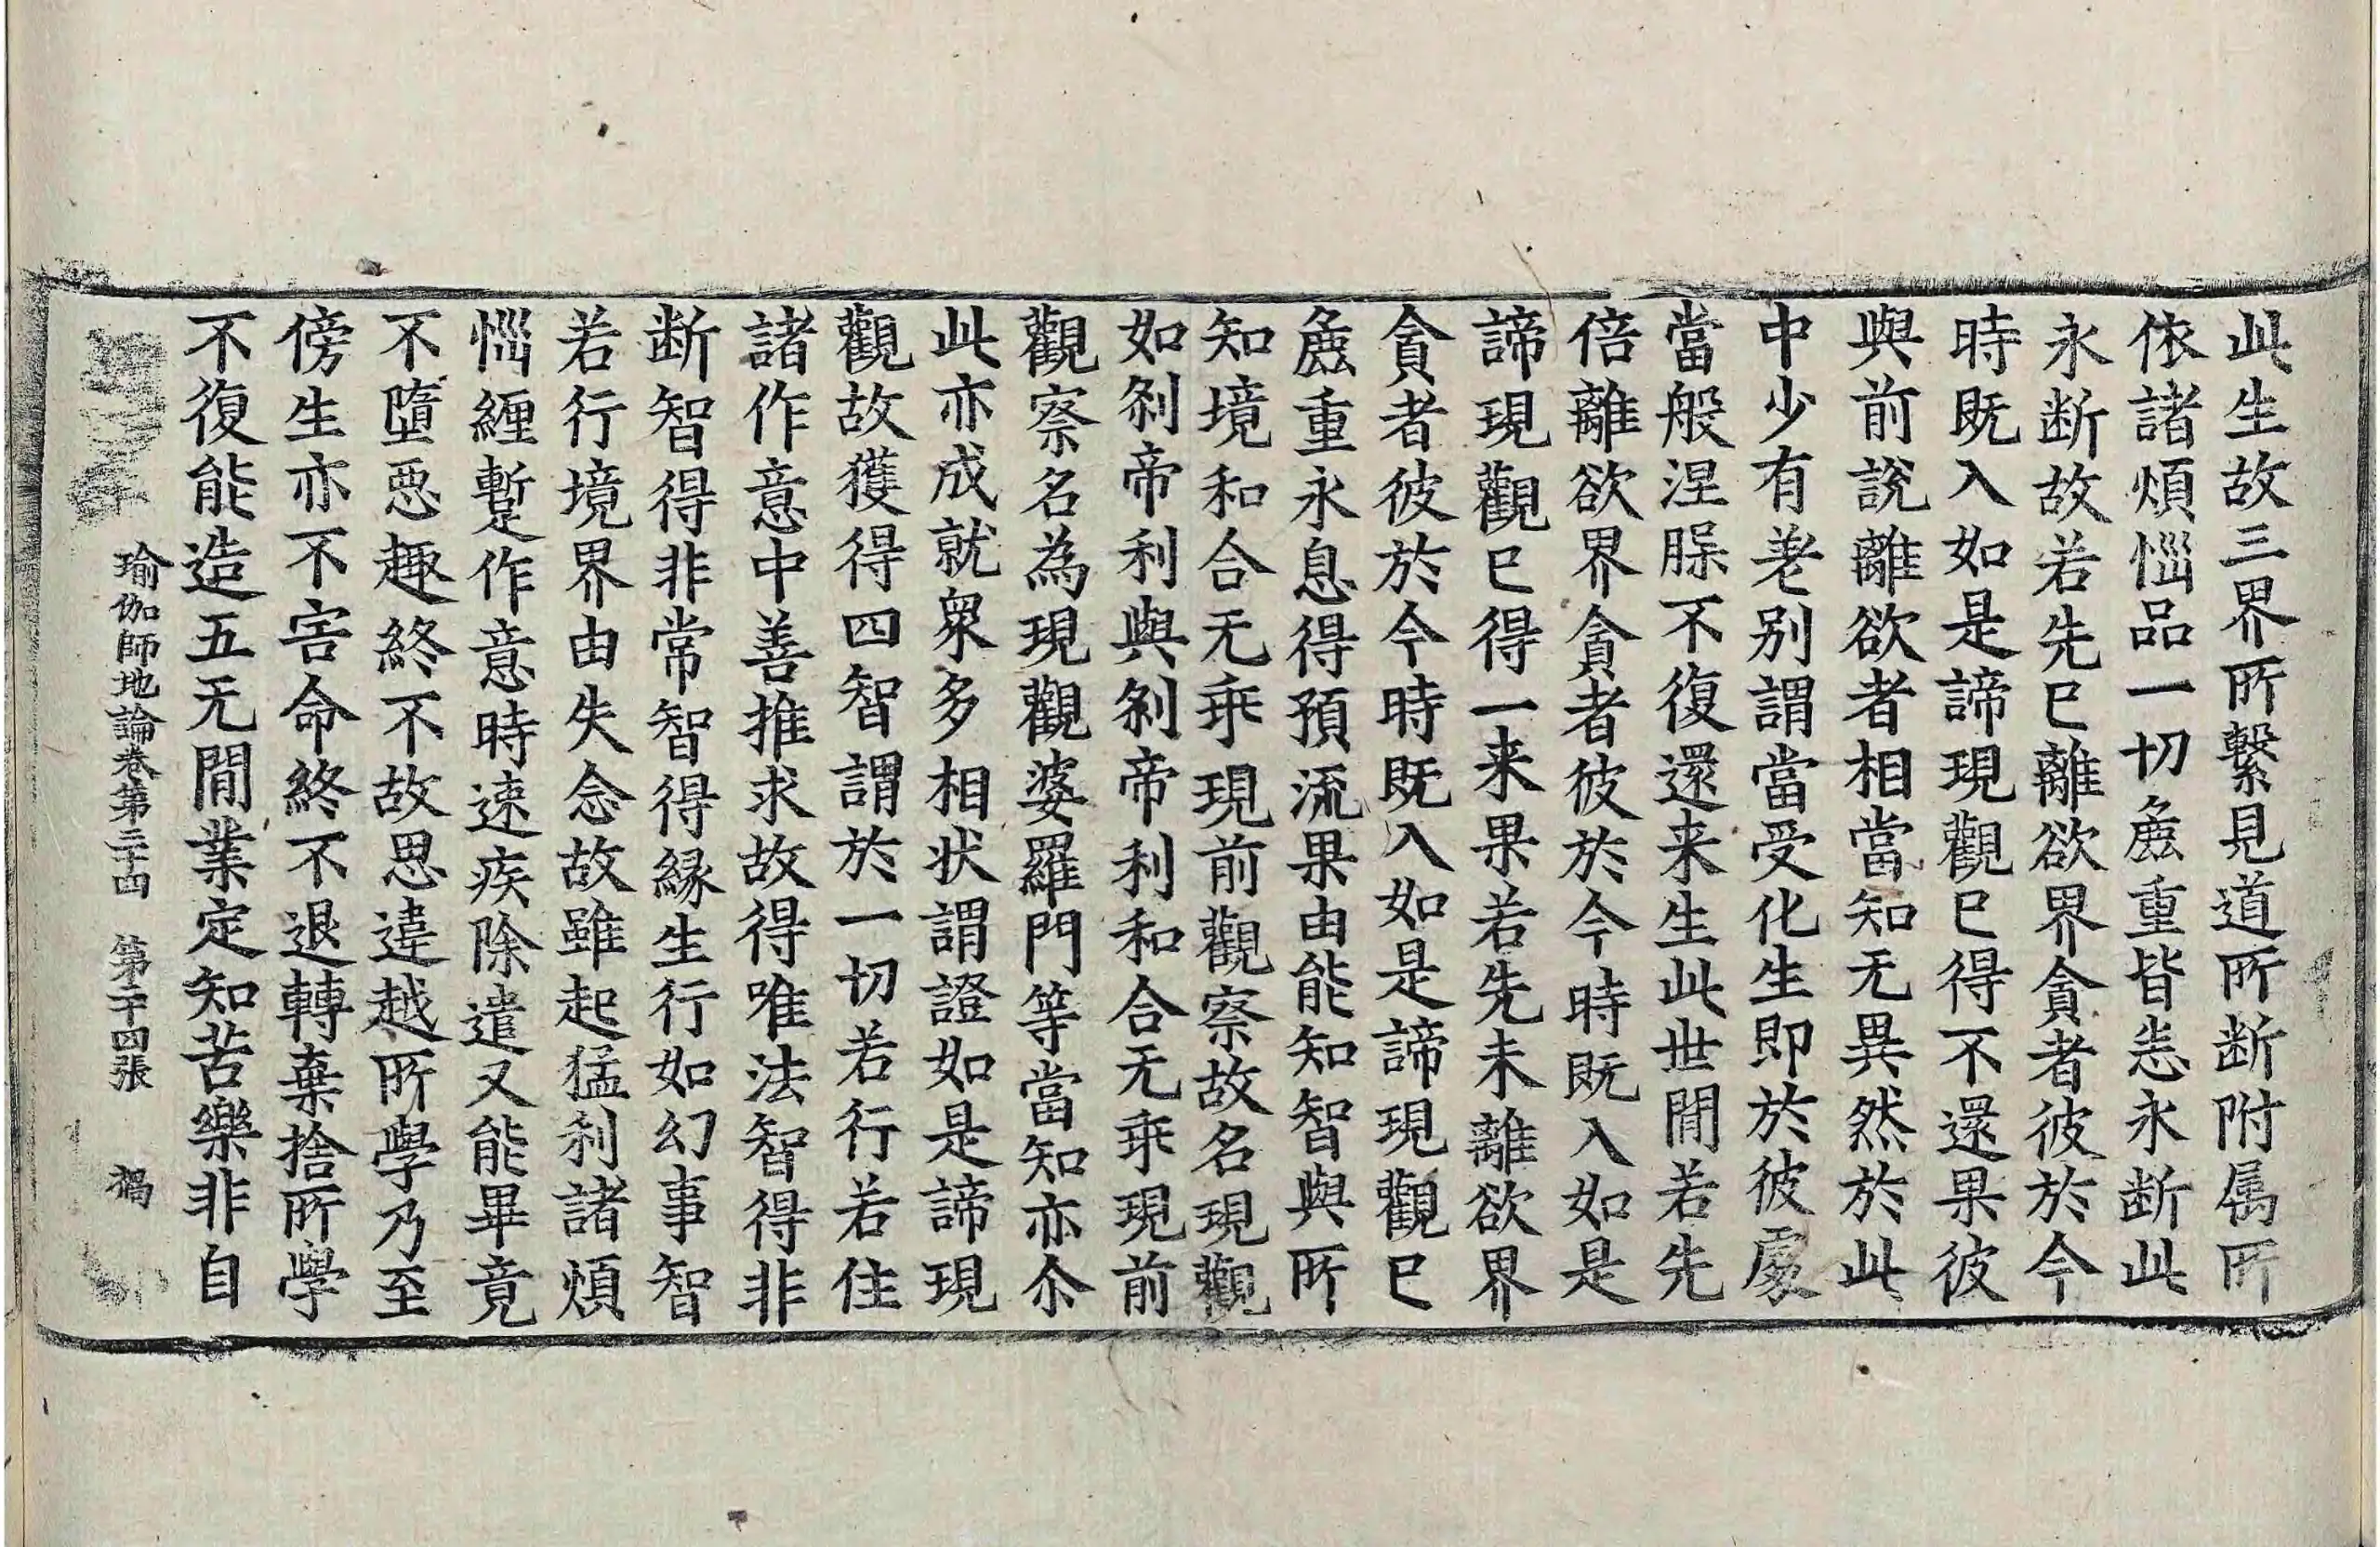 此生故三界所繫見道所断附属所
依諸煩惱品一切麁重皆悉永断此
永断故若先已離欲界貪者彼於今
時既入如是諦現觀已得不還果彼
與前說離欲者相當知无異然於此
中少有差別謂當受化生即於彼處
當般涅槃不復還来生此世間若先
倍離欲界貪者彼於今時既入如是
諦現觀已得一来果若先未離欲界
貪者彼於今時既入如是諦現觀已
麁重永息得預流果由能知智與所
知境和合无乖現前觀察故名現觀
如刹帝利與刹帝利和合无乖現前
觀察名為現觀婆羅門等當知亦尒
此亦成就衆多相状謂證如是諦現
觀故獲得四智謂於一切若行若住
諸作意中善推求故得唯法智得非
断智得非常智得縁生行如幻事智
若行境界由失念故雖起猛利諸煩
惱纏暫作意時速疾除遣又能畢竟
不墮惡趣終不故思違越所學乃至
傍生亦不害命終不退轉棄捨所學
不復能造五无間業定知苦樂非自
瑜伽師地論卷第三十四 第二十四張